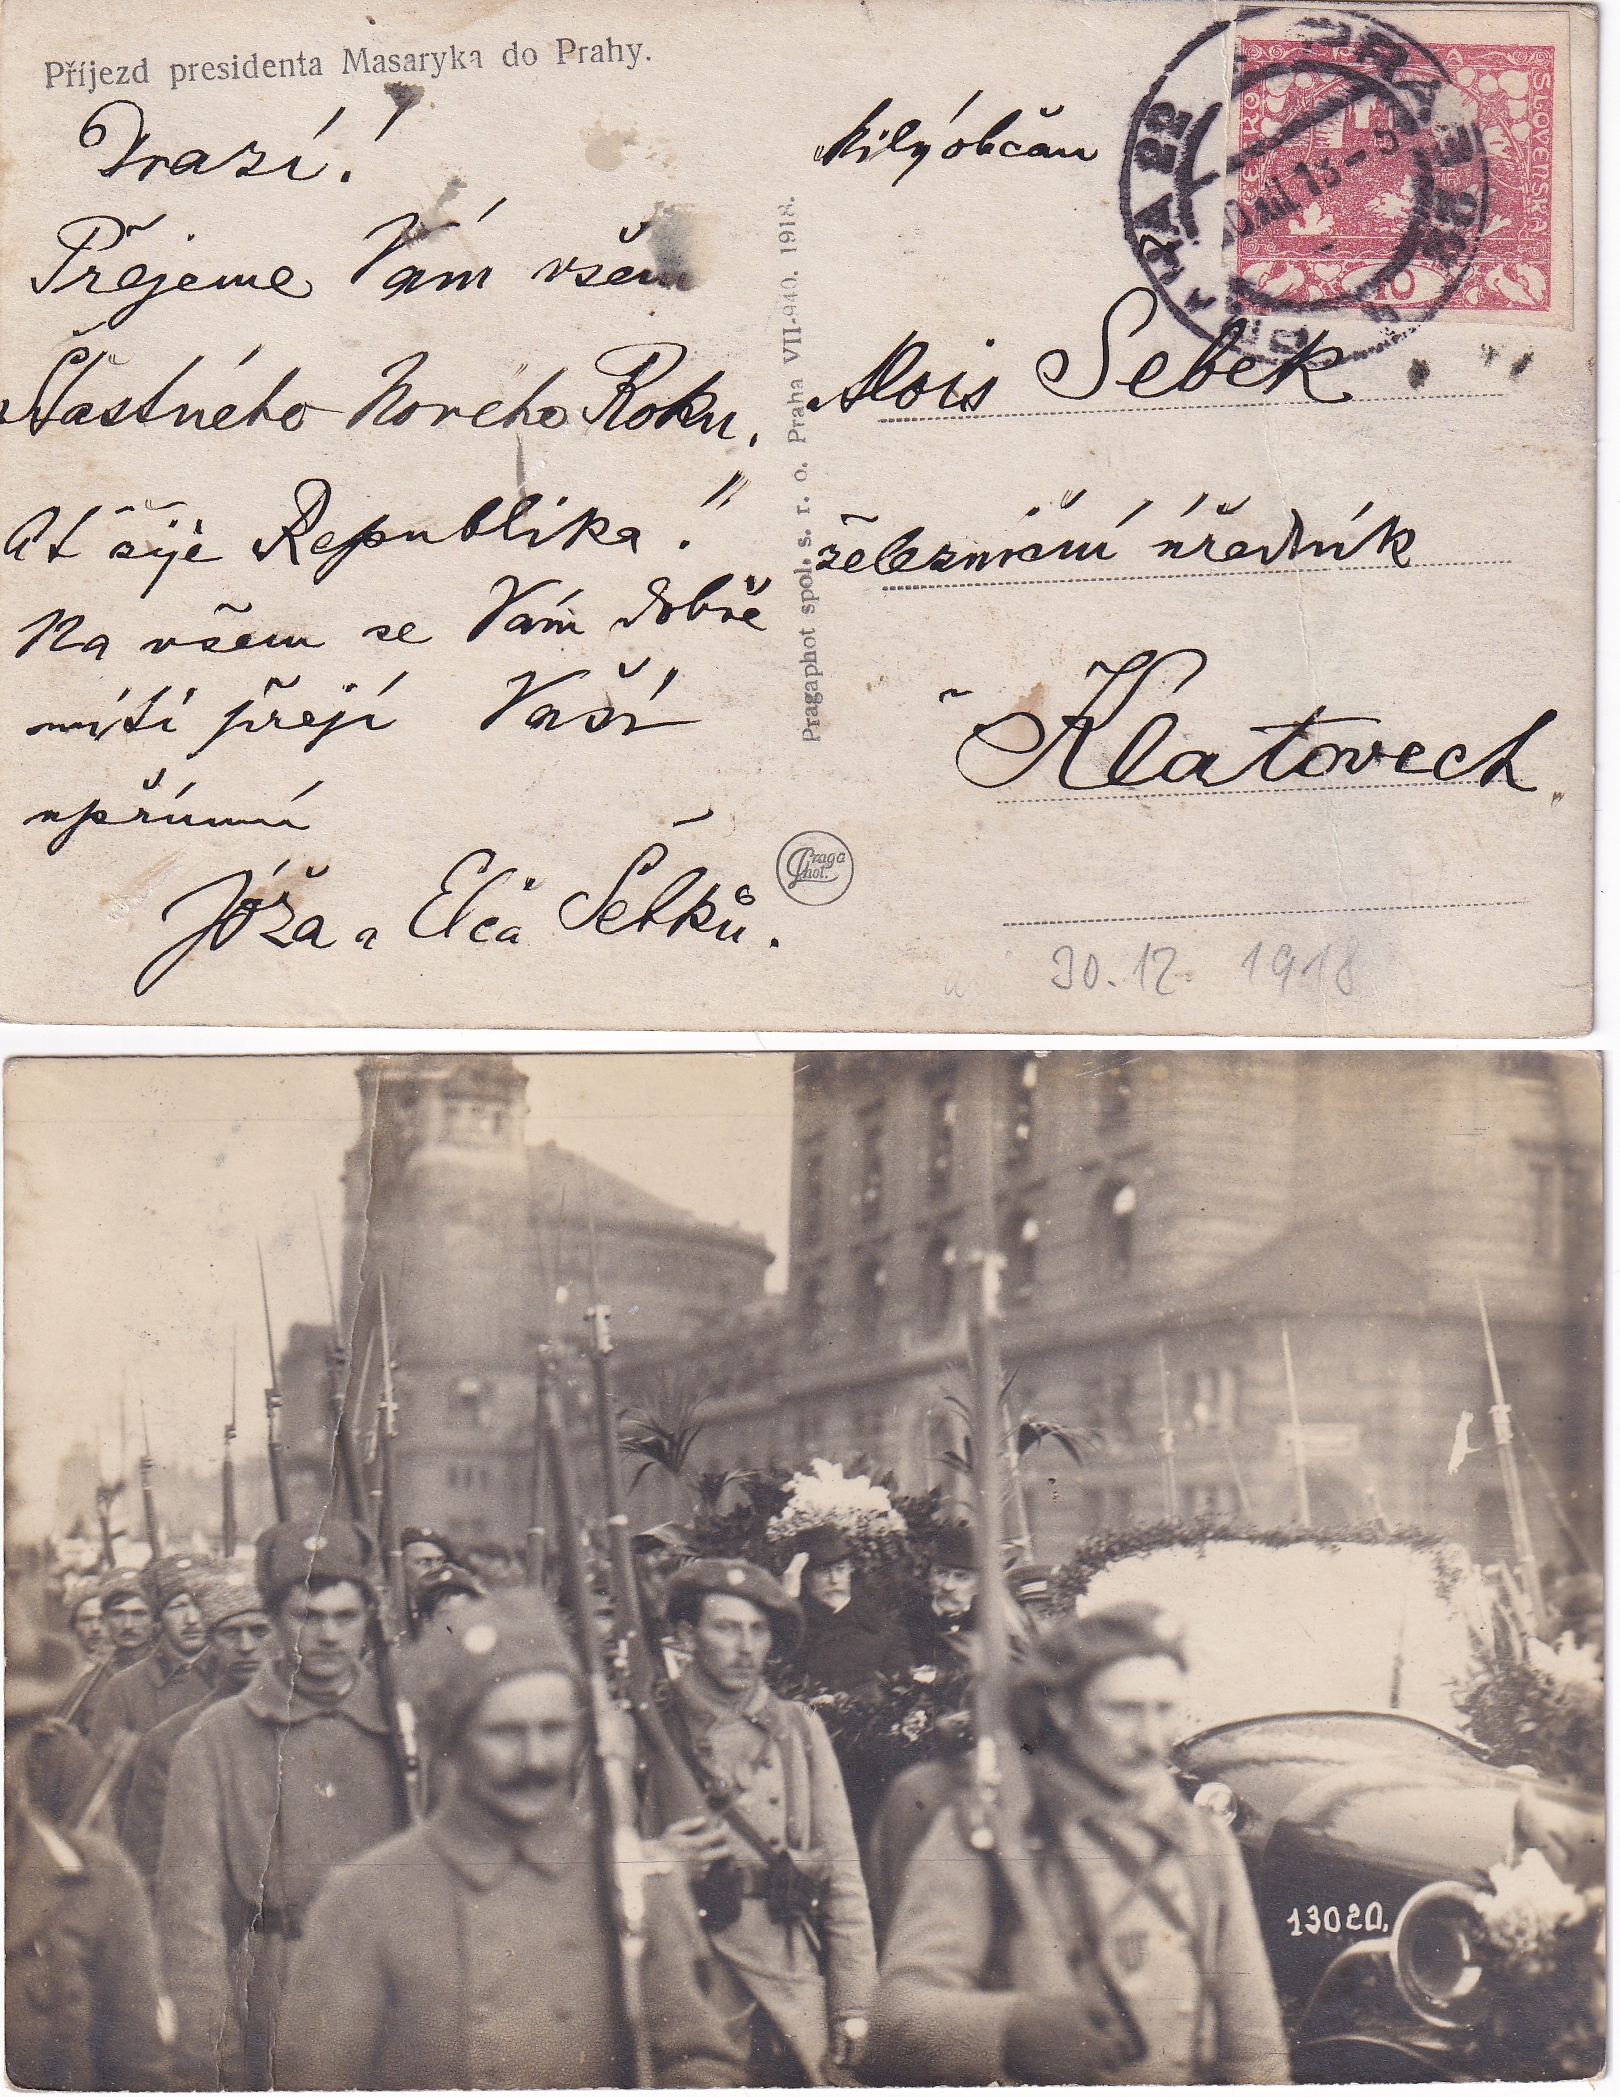 Příjezd presidenta Masaryka do Prahy.
Drazí!
Přejeme Vám všem
Šťastného Nového Roku,
Ať žije Republika!"
Na všem se Vám dobře
míti přejí Vaši
upřímní
Jóža a Elča Šebků.
Pragaphot spol. s. r. o. Praha VII-940. 1918.
Praga
Phot.
Milý občan
Alois Šebek
železniční úředník
Klatovech
30. 12. 1918
PRAHA 22
SLOVENSKÁ
10
13020.